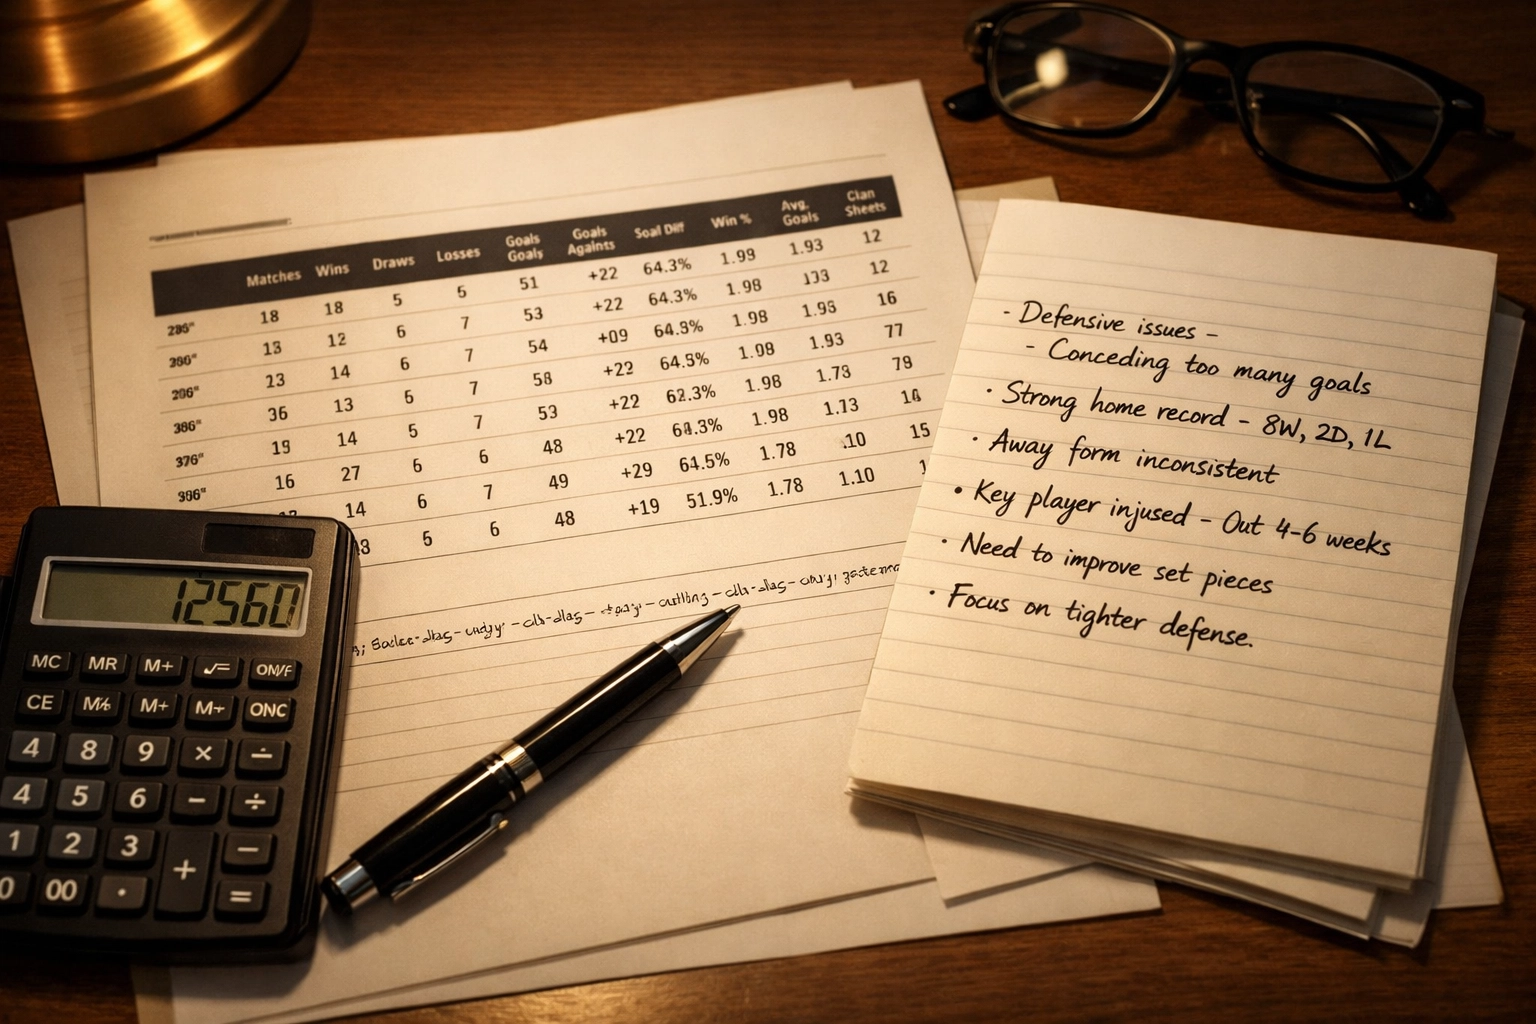 Matches Wins Draws Losses Goals Goals Goals Againts Soal Diff Win % Avg. Goals Clan Sheets
286" 18 18 5 5 51 +22 64.3% 1.99 1.93 12
386" 13 12 6 7 53 +22 64.3% 1.98 133 12
286" 23 14 6 7 54 +09 64.9% 1.98 1.95 16
386" 36 13 5 7 58 +22 64.5% 1.98 1.93 77
376" 19 14 5 7 53 +22 62.3% 1.98 1.78 79
396" 16 27 6 6 48 +22 64.3% 1.98 1.13 14
14 6 7 49 +29 64.5% 1.78 .10 15
5 6 48 +19 51.9% 1.78 1.10
- Defensive issues –
- Conceding too many goals
· Strong home record - 8W, 2D, 1L
· Away form inconsistent
• Key player injused - Out 4-6 weeks
· Need to improve set pieces
· Focus on tighter defense.
12560
MC MR M+ √= ON/F
CE M+ M÷ ONC
4 8 9 × ÷
4 5 6 − ÷
1 2 3 + −
0 00 · =